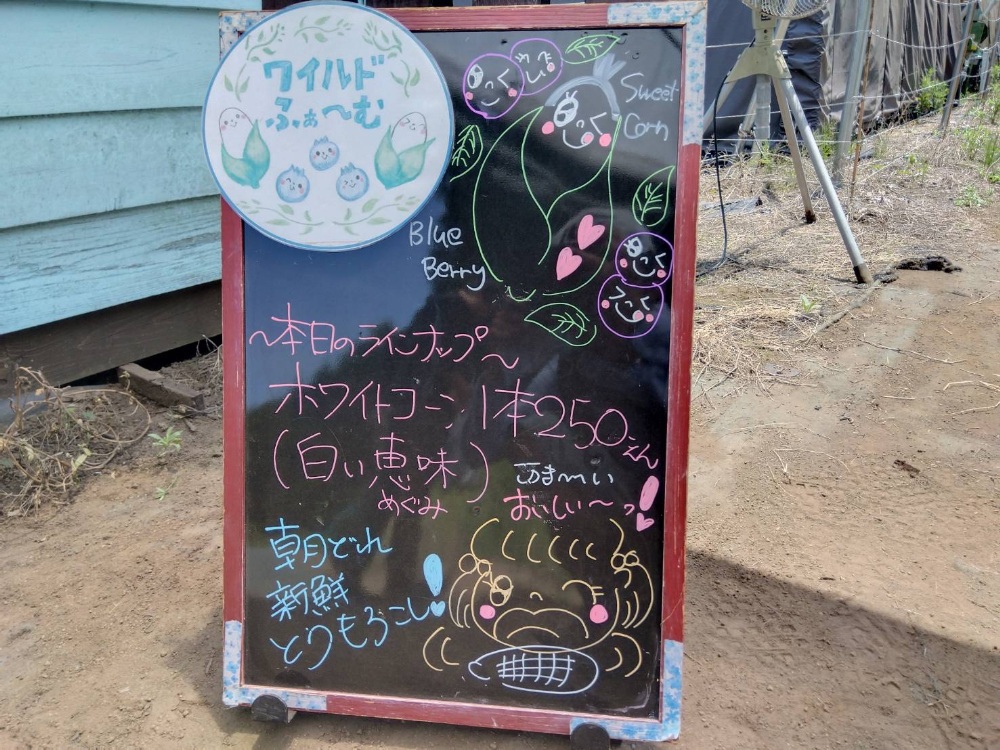 ワイルド
ふぁ〜む
Sweet
Corn
Blue
Berry
〜本日のラインナップ〜
ホワイトコーン 1本250えん
(白い恵味)
めぐみ
うま〜い
おいしい〜っ!
朝どれ
新鮮
とうもろこし!